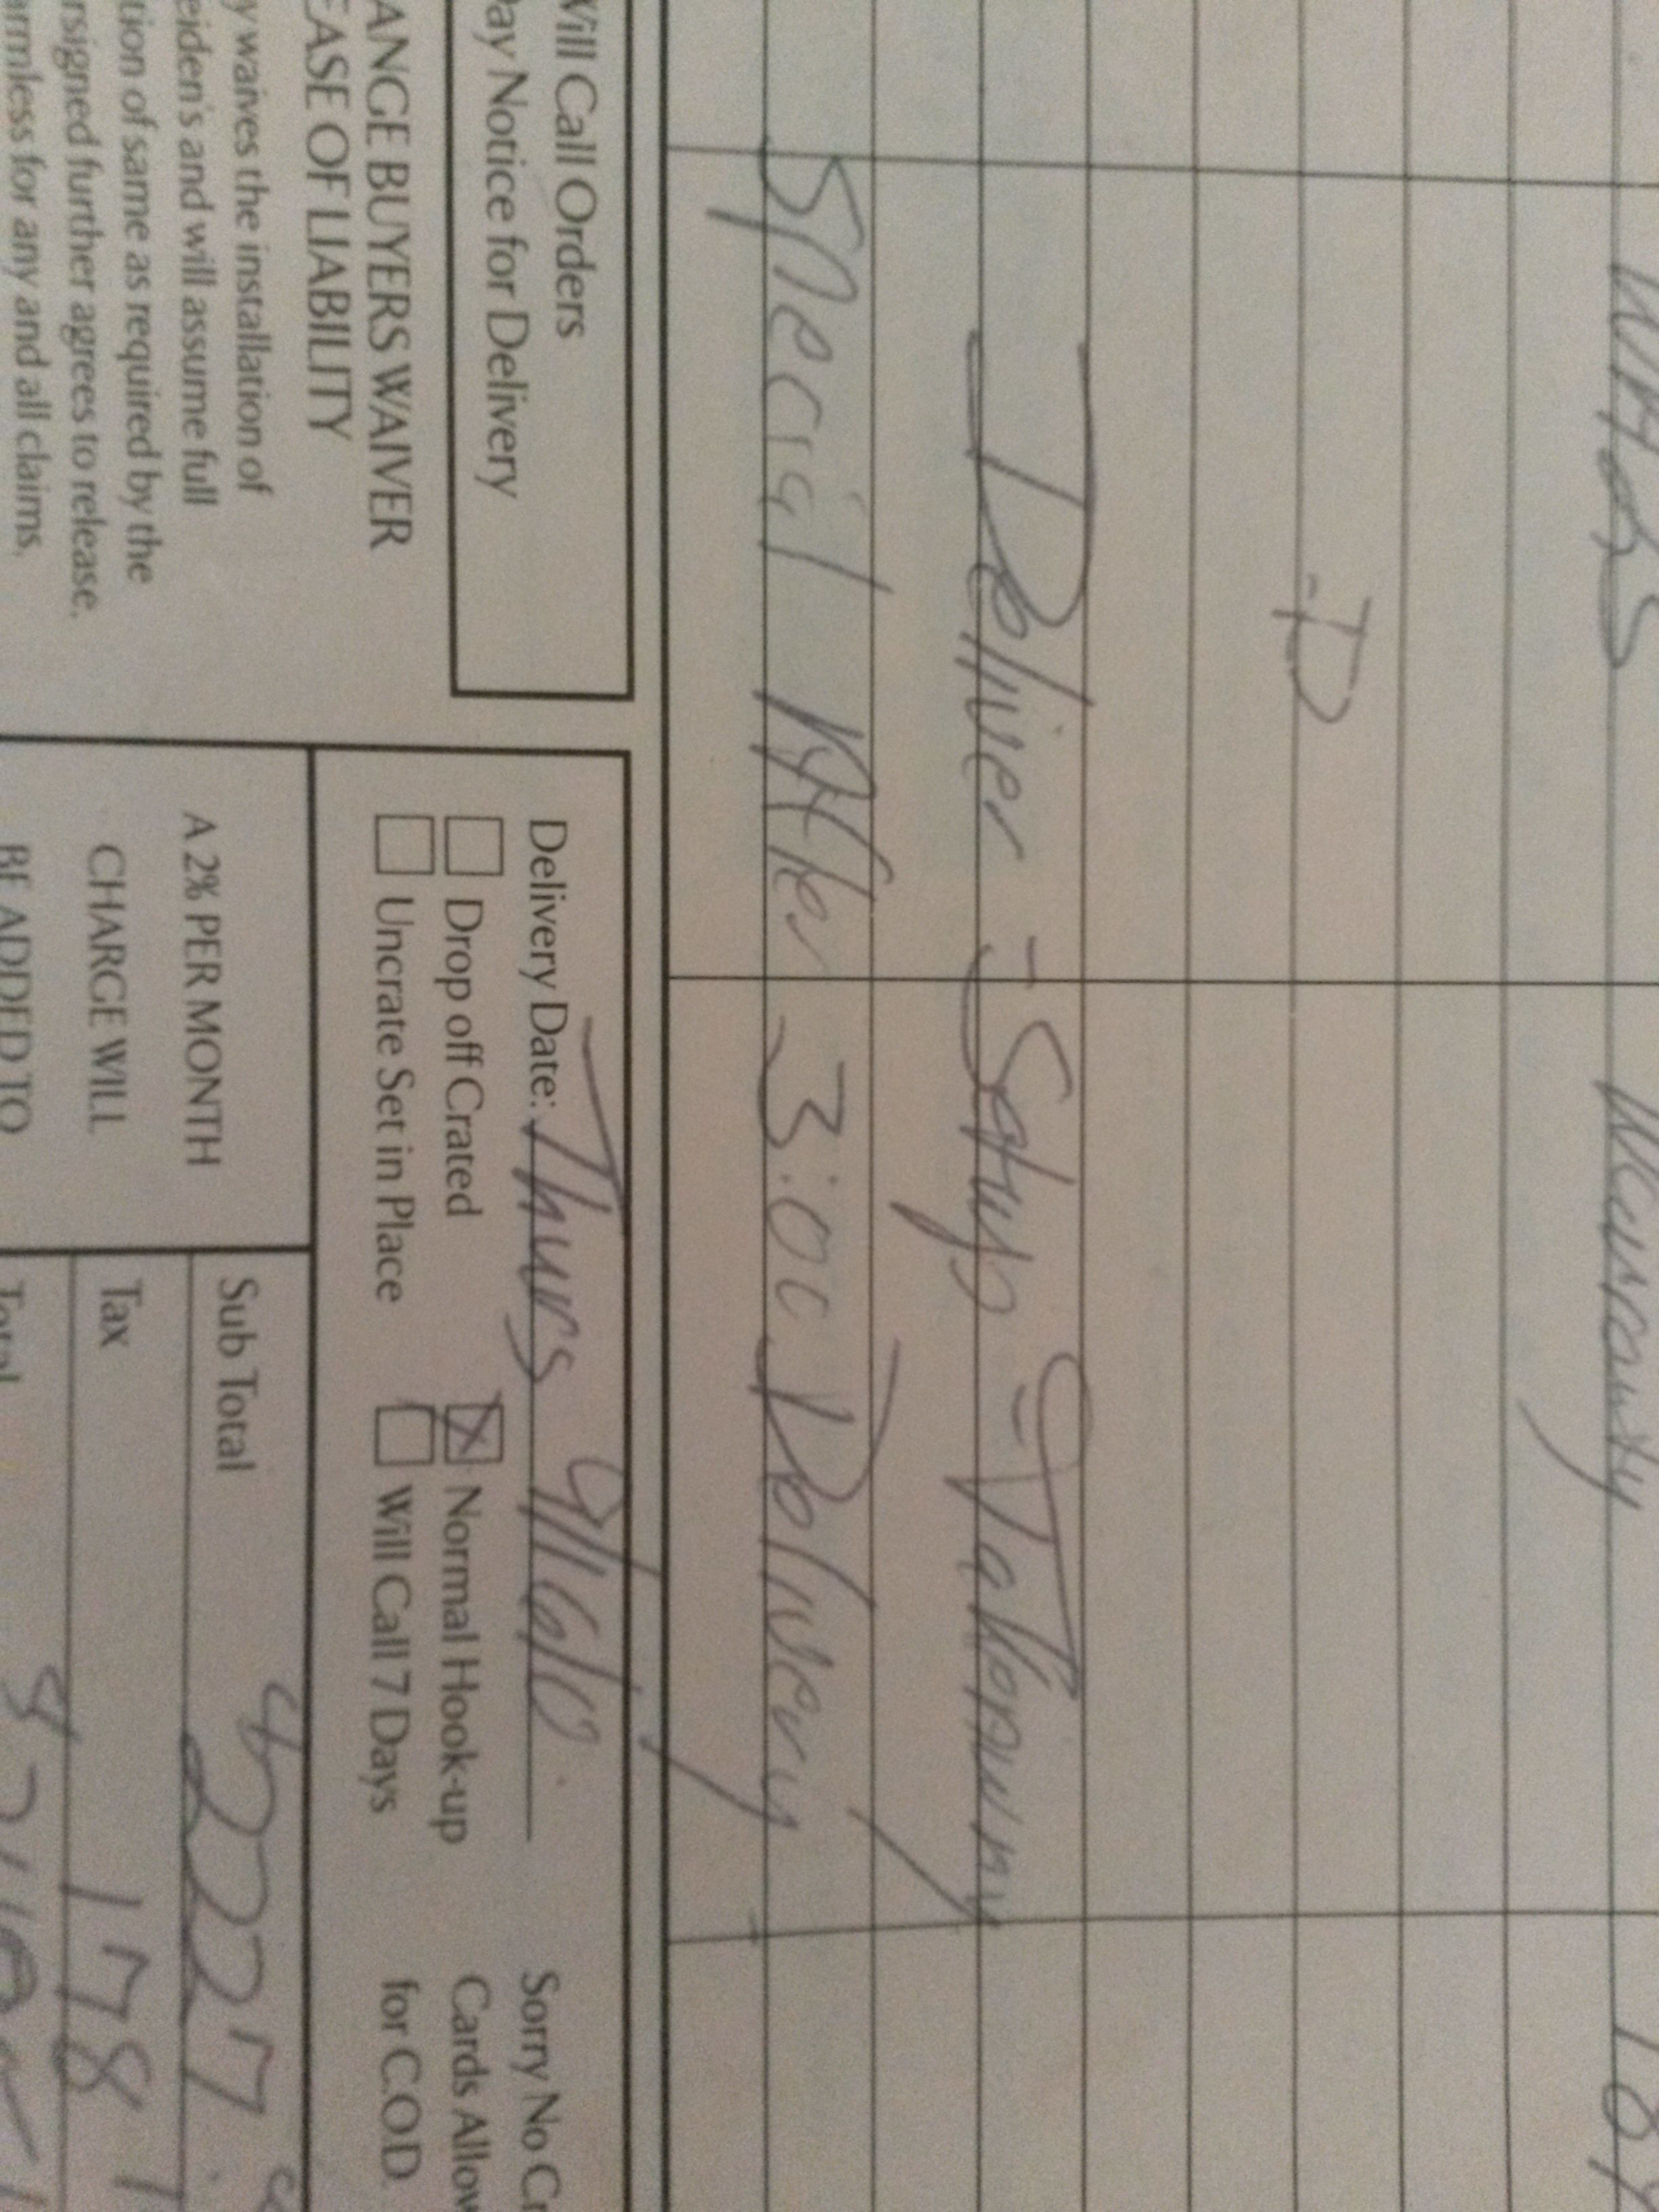 Warranty
-D
Deliver - Setup - Takeaway
Special After 3:00 Delivery
Will Call Orders
Day Notice for Delivery
ANGE BUYERS WAIVER
EASE OF LIABILITY
y waives the installation of
eiden's and will assume full
tion of same as required by the
rsigned further agrees to release,
armless for any and all claims,
Delivery Date: Thurs 9/16/10
Drop off Crated
X Normal Hook-up
Uncrate Set in Place
Will Call 7 Days
Sorry No Cr
Cards Allow
for C.O.D.
A 2% PER MONTH
CHARGE WILL
BE ADDED TO
Sub Total 2227
Tax 178
Total